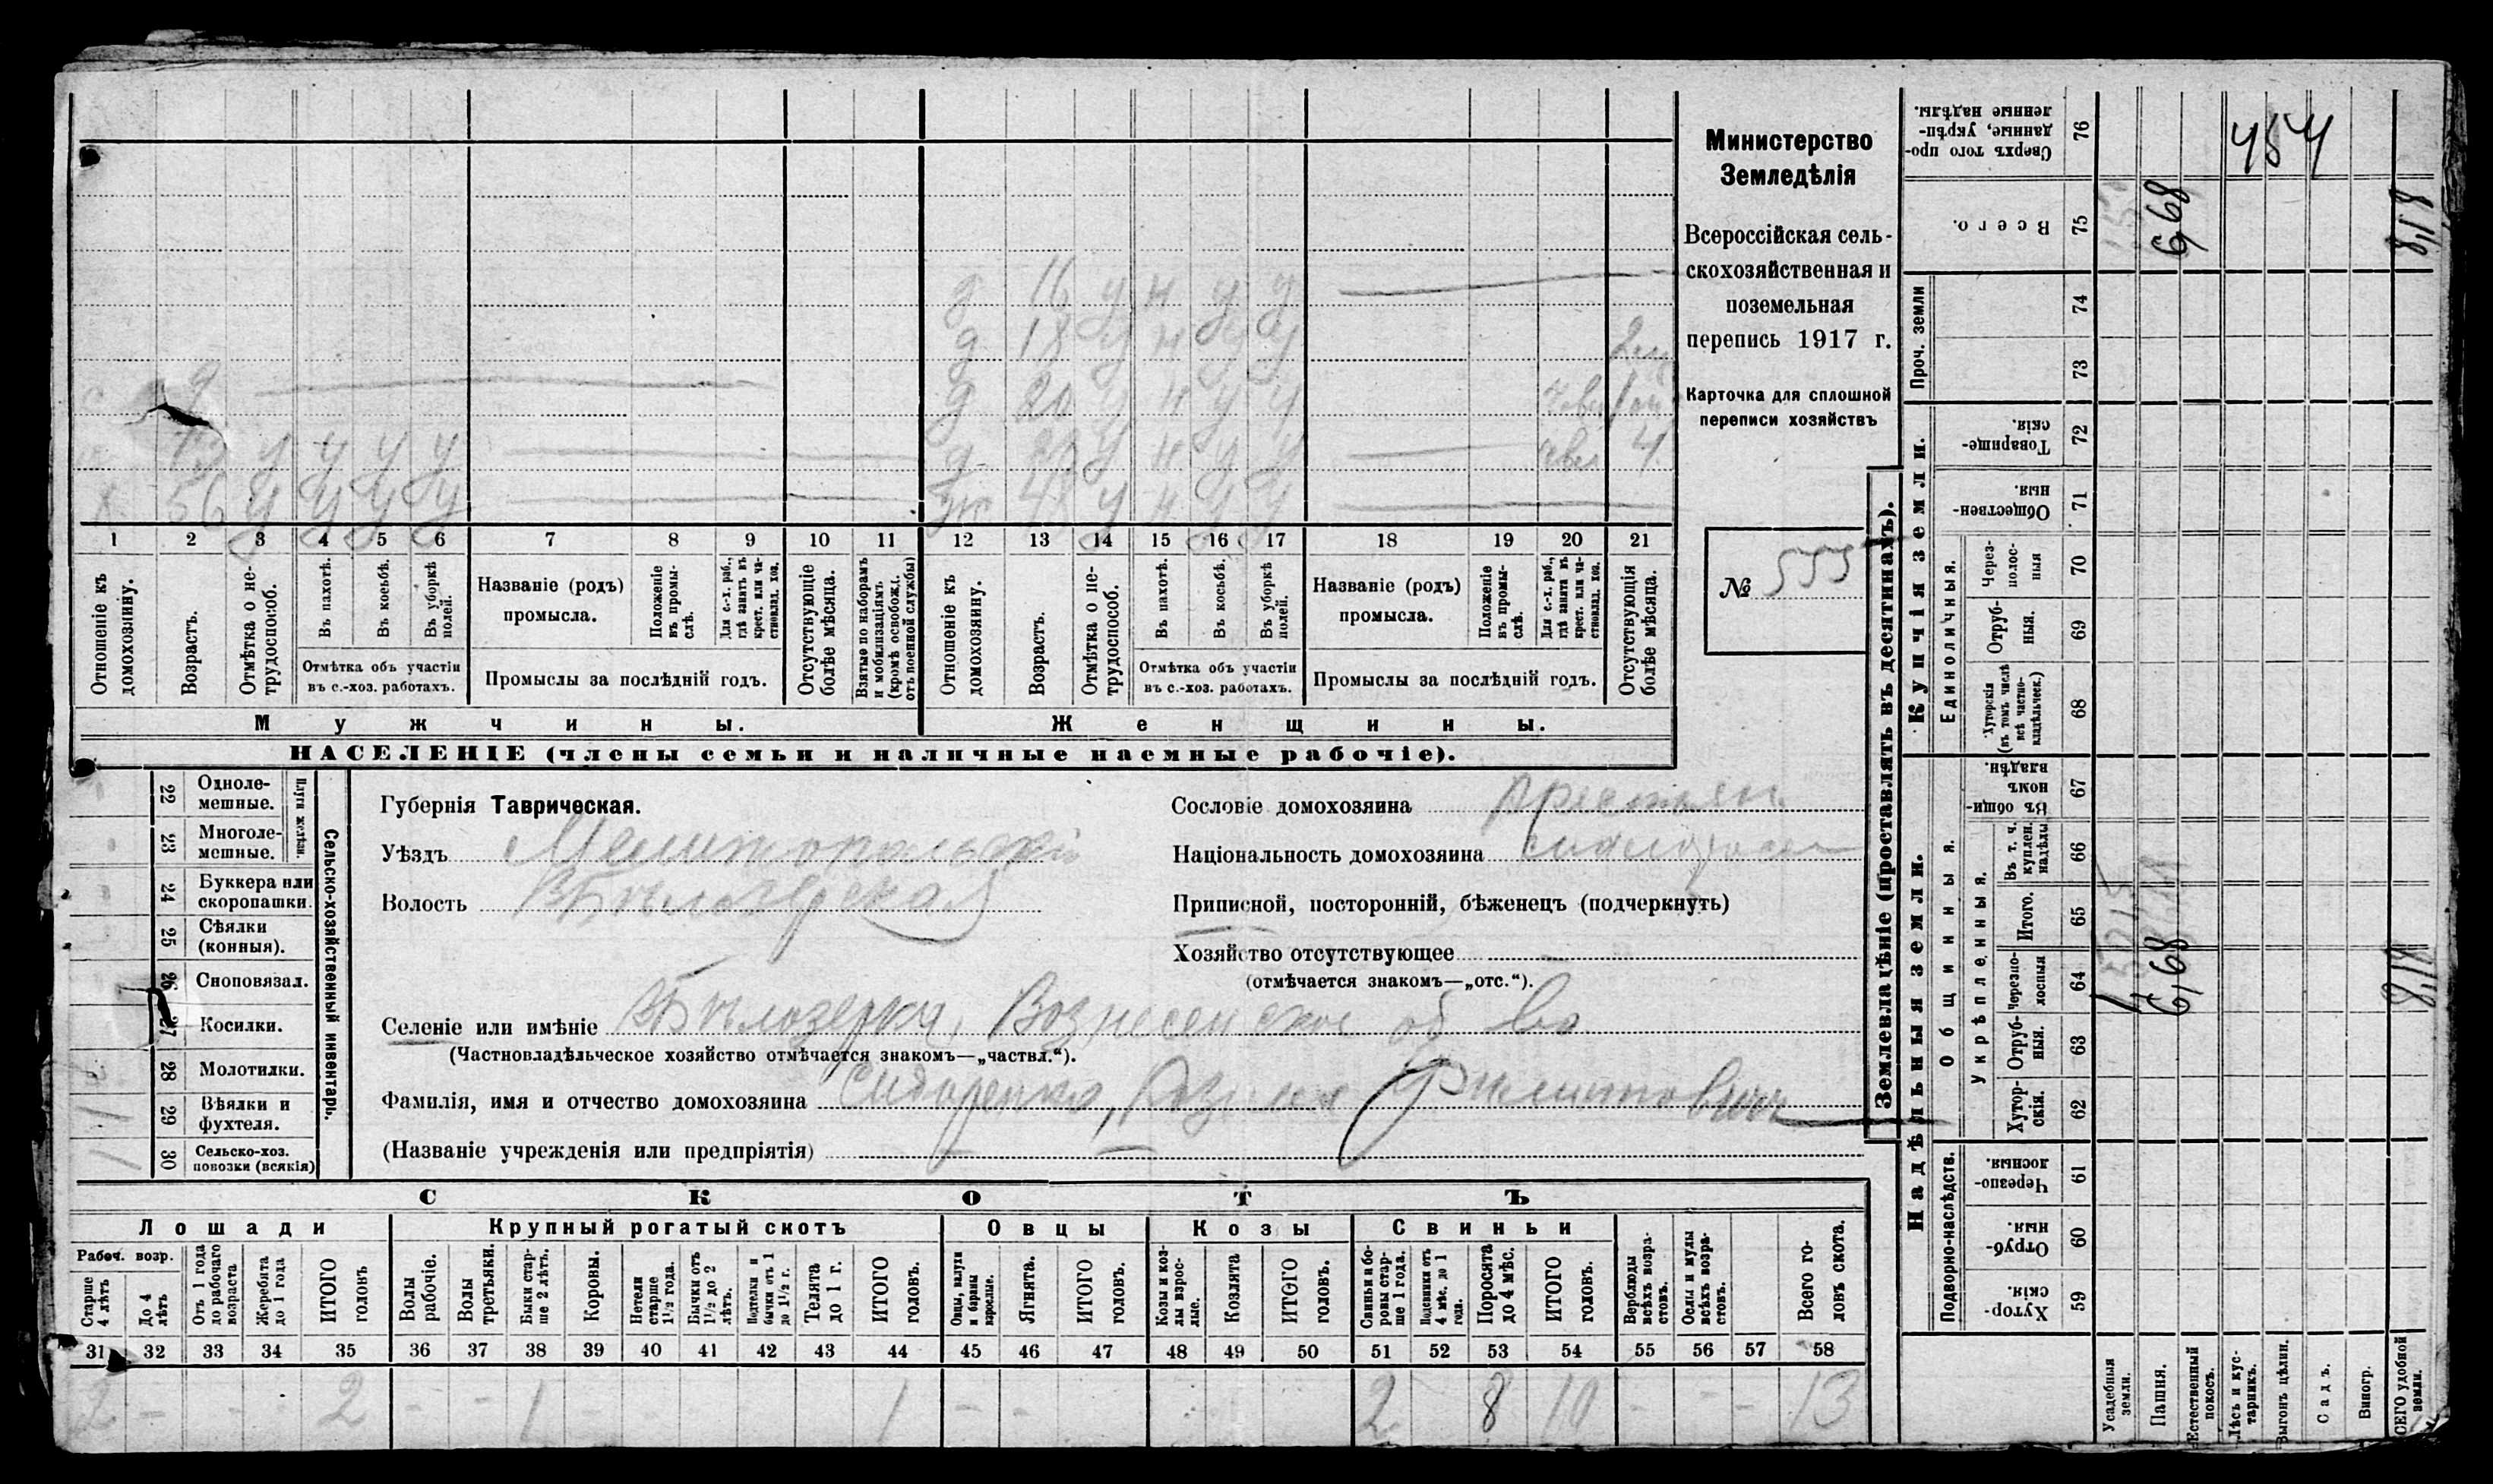 16 у н у у
18 у н у у
д 20 у н у у
у у у у
56 у у у у
ж 48 у н у у
1 2 3 4 5 6 7 8 9 10 11 12 13 14 15 16 17 18 19 20 21
Отношеніе къ домохозяину.
Возрастъ.
Отмѣтка о не-трудоспособ.
Въ пахотѣ.
Въ косьбѣ.
Въ уборкѣ полей.
Отмѣтка объ участіи
въ с.-хоз. работахъ.
Названіе (родъ)
промысла.
Положеніе въ промы-слѣ.
Для с.-х. раб., гдѣ занятъ въ крест. или ча-стновлад. хоз.
Промыслы за послѣдній годъ.
Отсутствующіе болѣе мѣсяца.
Взятые по наборамъ и мобилизаціямъ (кромѣ освобожд. отъ военной службы)
Отношеніе къ домохозяину.
Возрастъ.
Отмѣтка о не-трудоспособ.
Въ пахотѣ.
Въ косьбѣ.
Въ уборкѣ полей.
Отмѣтка объ участіи
въ с.-хоз. работахъ.
Названіе (родъ)
промысла.
Положеніе въ промы-слѣ.
Для с.-х. раб., гдѣ занятъ въ крест. или ча-стновлад. хоз.
Промыслы за послѣдній годъ.
Отсутствующія болѣе мѣсяца.
Мужчины.
Женщины.
НАСЕЛЕНІЕ (члены семьи и наличные наемные рабочіе).
Министерство
Земледѣлія
Всероссійская сель-
скохозяйственная и
поземельная
перепись 1917 г.
Карточка для сплошной
переписи хозяйствъ
№ 555
22 Одноле-мешные.
23 Многоле-мешные.
Плуги желѣзн.
24 Буккера или скоропашки.
25 Сѣялки (конныя).
26 Сноповязал.
27 Косилки.
28 Молотилки.
29 Вѣялки и фухтеля.
30 Сельско-хоз. повозки (всякія)
Сельско-хозяйственный инвентарь.
Губернія Таврическая.
Уѣздъ Мелитопольскій
Волость Бѣлозерская
Сословіе домохозяина крестьян.
Національность домохозяина малоросс
Приписной, посторонній, бѣженец (подчеркнуть)
Хозяйство отсутствующее
(отмѣчается знакомъ—„отс.“).
Селеніе или имѣніе Бѣлозерка, Вознесенское об-во
(Частновладѣльческое хозяйство отмѣчается знакомъ—„частвл.“).
Фамилія, имя и отчество домохозяина Сидоренко, Филиппович
(Названіе учрежденія или предпріятія)
СКОТЪ
Лошади
Крупный рогатый скотъ
Овцы
Козы
Свиньи
Рабоч. возр.
Старше 4 лѣтъ
До 4 лѣтъ
Отъ 1 года до рабочаго возраста
Жеребята до 1 года
ИТОГО головъ
Волы рабочіе.
Волы третьяки.
Быки стар-ше 2 лѣтъ.
Коровы.
Нетели старше 1½ года.
Бычки отъ 1½ до 2 лѣтъ.
Подтелки и бычки отъ 1 до 1½ г.
Телята до 1 г.
ИТОГО головъ.
Овцы, валухи и бараны взрослые.
Ягнята.
ИТОГО головъ.
Козы и коз-лы взрос-лые.
Козлята
ИТОГО головъ.
Свиньи и бо-ровы стар-ше 1 года.
Подсвинки отъ 4 мѣс. до 1 года.
Поросята до 4 мѣс.
ИТОГО головъ.
Верблюды всѣхъ возра-стовъ.
Ослы и мулы всѣхъ возра-стовъ.
Всего го-ловъ скота.
31 32 33 34 35 36 37 38 39 40 41 42 43 44 45 46 47 48 49 50 51 52 53 54 55 56 57 58
2 - - - 2 - - 1 - 1 - - 2 8 10 - - - 13
Землевладѣніе (проставлять въ десятинахъ).
Сверхъ того про-данные, укрѣп-ленные надѣлы. 76
454
Всего. 75
6,68
8,18
Проч. земли
74
73
Купчія земли.
Товарище-скія. 72
Обществен-ныя. 71
Единоличныя.
Через-полос-ныя 70
Отруб-ныя. 69
Хуторскія (въ томъ числѣ всѣ частно-владѣльческ.) 68
Надѣльныя земли.
Общинныя.
Въ общи-номъ владѣн. 67
Укрѣпленныя.
Въ т. ч. куплен. надѣлы 66
Итого. 65
Черезпо-лосныя 64
6,68
8,18
Отруб-ныя. 63
Хутор-скія. 62
Подворно-наслѣдств.
Черезпо-лосныя. 61
Отруб-ныя. 60
Хутор-скія. 59
Усадебныя земли.
Пашня.
Естественный покосъ.
Лѣсъ и кус-тарникъ.
Выгонъ цѣлин.
Садъ.
Виногр.
ВСЕГО удобной земли.